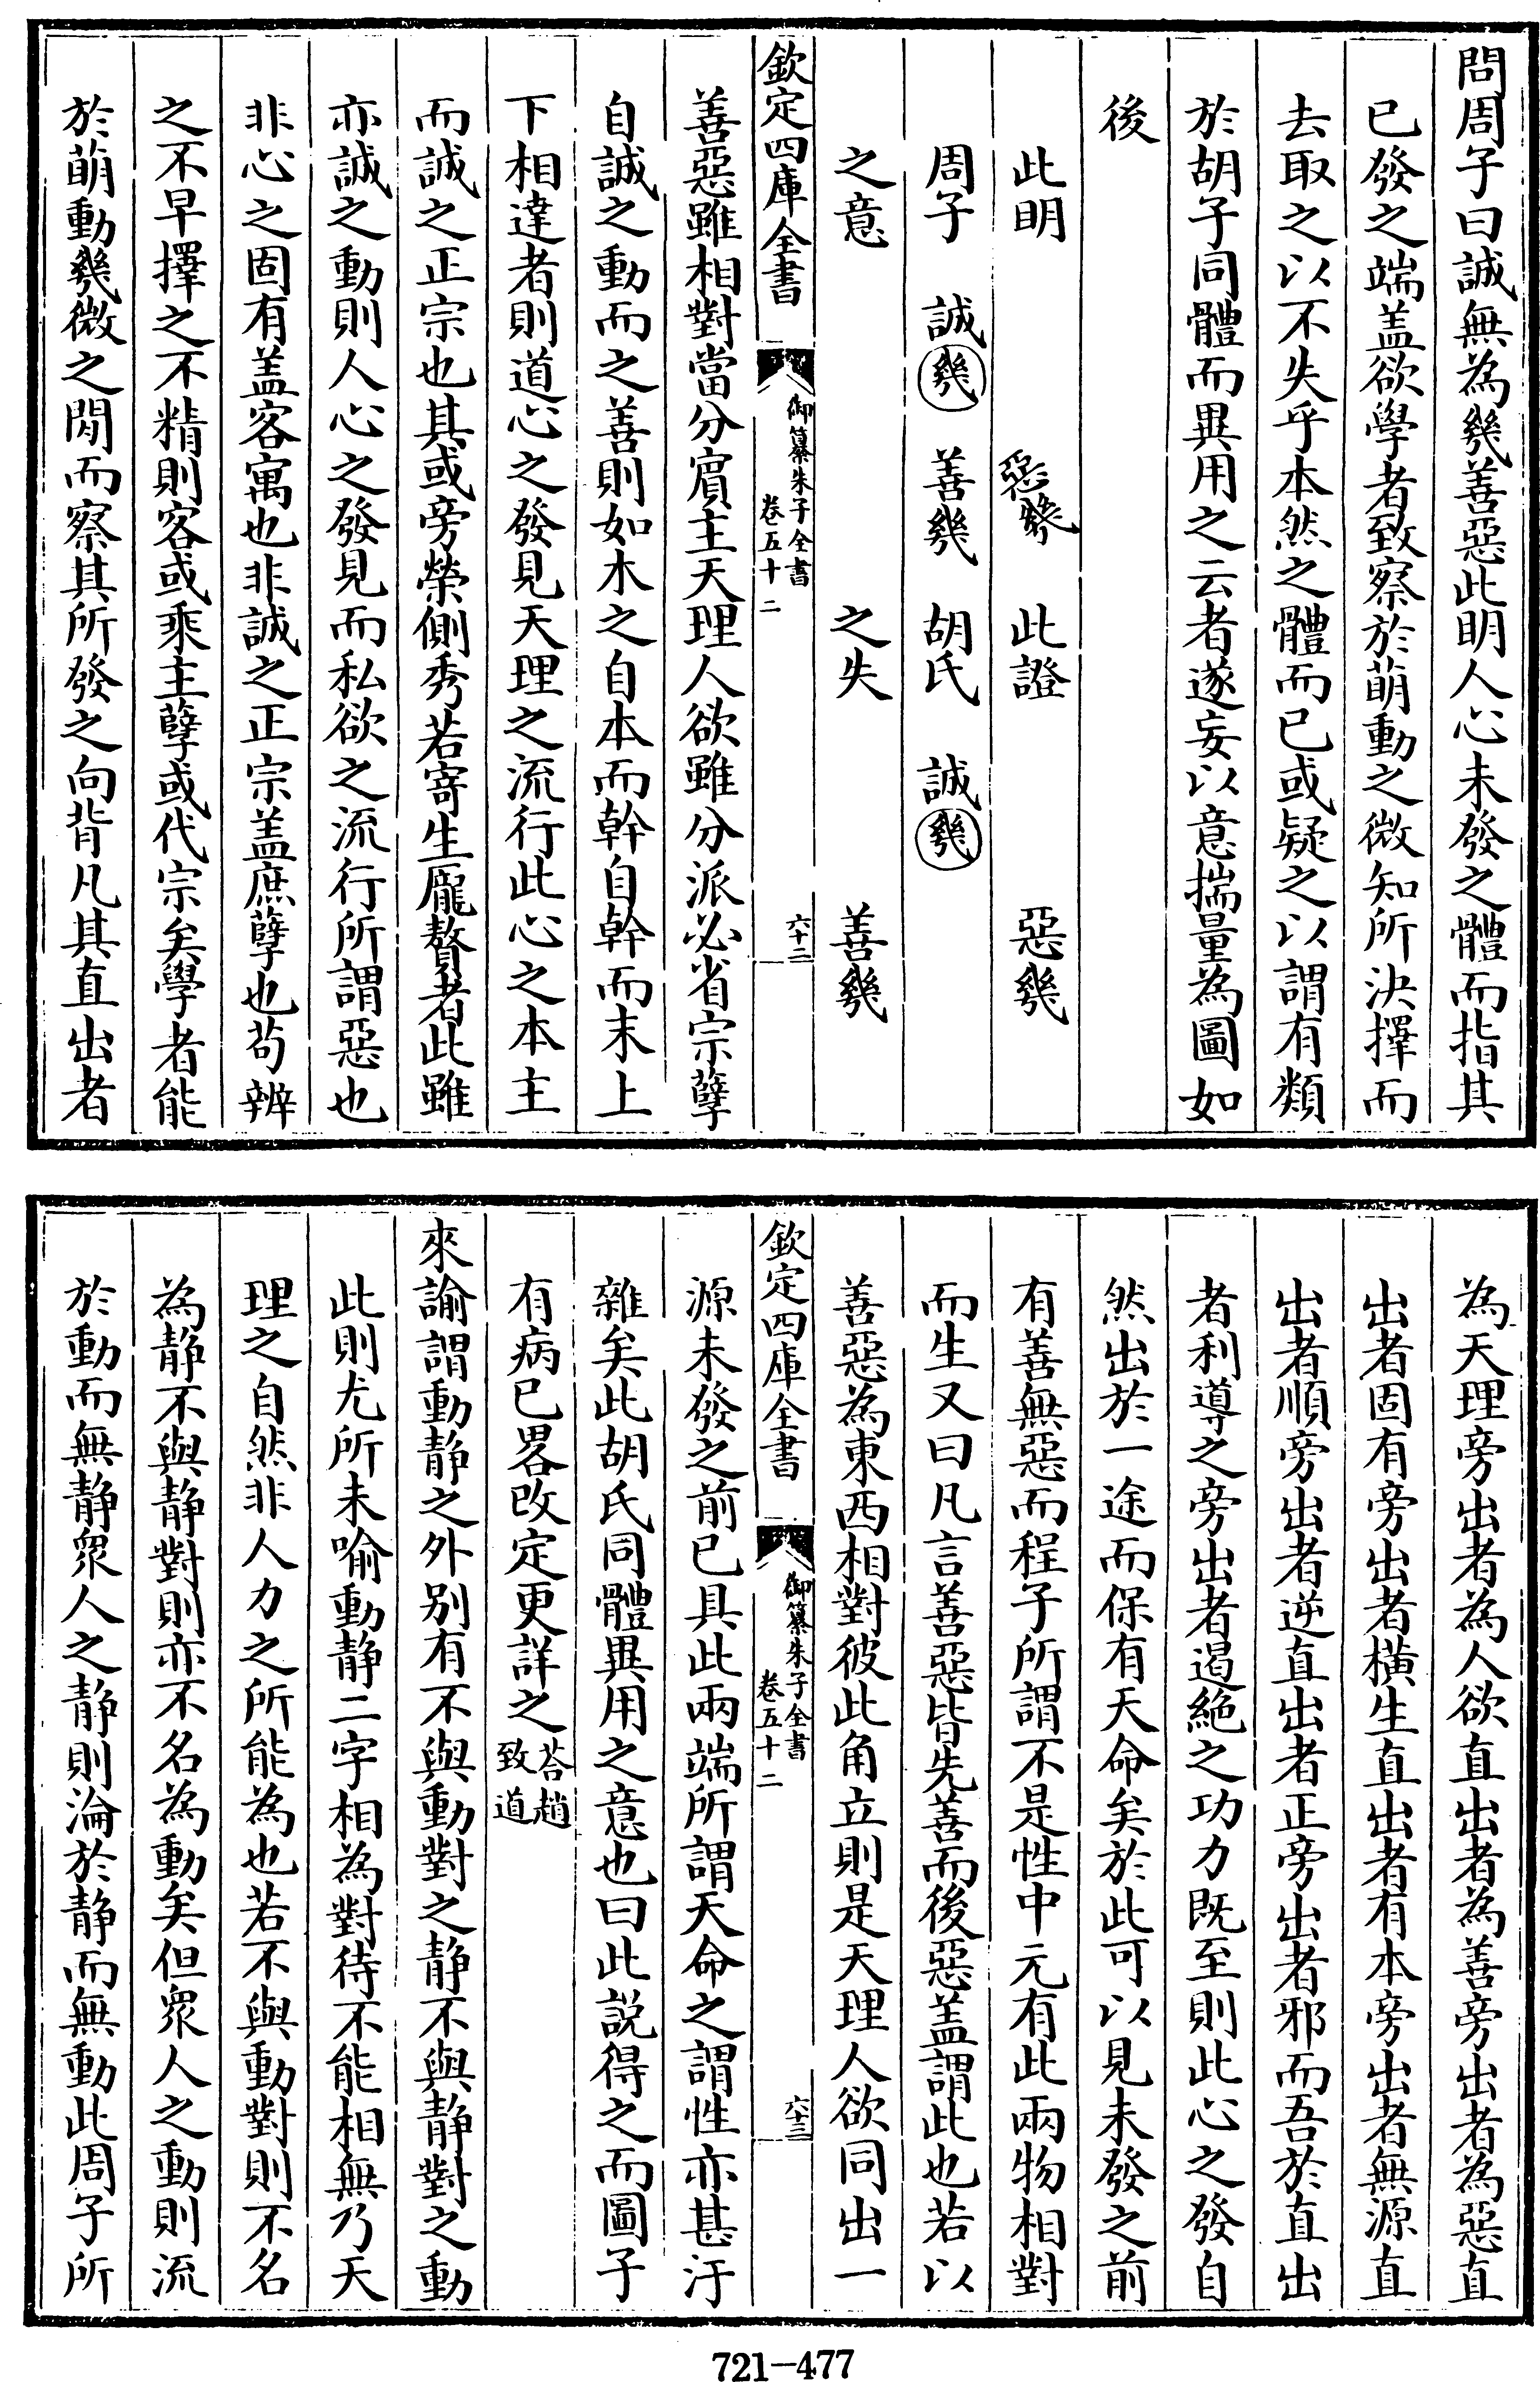 問周子曰誠無為幾善惡此明人心未發之體而指其
已發之端盖欲學者致察於萌動之微知所決擇而
去取之以不失乎本然之體而已或疑之以謂有類
於胡子同體而異用之云者遂妄以意揣量為圖如
後
此明 惡幾 此證 惡幾
周子 誠幾 善幾 胡氏 誠幾
之意 之失 善幾
欽定四庫全書 御纂朱子全書 卷五十二 六十二
善惡雖相對當分賓主天理人欲雖分派必省宗孽
自誠之動而之善則如木之自本而幹自幹而末上
下相達者則道心之發見天理之流行此心之本主
而誠之正宗也其或旁榮側秀若寄生厖贅者此雖
亦誠之動則人心之發見而私欲之流行所謂惡也
非心之固有盖客寓也非誠之正宗盖庶孽也苟辨
之不早擇之不精則客或乘主孽或代宗矣學者能
於萌動幾微之間而察其所發之向背凡其直出者
為天理旁出者為人欲直出者為善旁出者為惡直
出者固有旁出者橫生直出者有本旁出者無源直
出者順旁出者逆直出者正旁出者邪而吾於直出
者利導之旁出者遏絶之功力既至則此心之發自
然出於一途而保有天命矣於此可以見未發之前
有善無惡而程子所謂不是性中元有此兩物相對
而生又曰凡言善惡皆先善而後惡盖謂此也若以
善惡為東西相對彼此角立則是天理人欲同出一
欽定四庫全書 御纂朱子全書 卷五十二 六十三
源未發之前已具此兩端所謂天命之謂性亦甚汙
雜矣此胡氏同體異用之意也曰此説得之而圖子
有病已畧改定更詳之荅趙致道
來諭謂動静之外别有不與動對之静不與静對之動
此則尤所未喻動静二字相為對待不能相無乃天
理之自然非人力之所能為也若不與動對則不名
為静不與静對則亦不名為動矣但衆人之動則流
於動而無静衆人之静則淪於静而無動此周子所
721-477